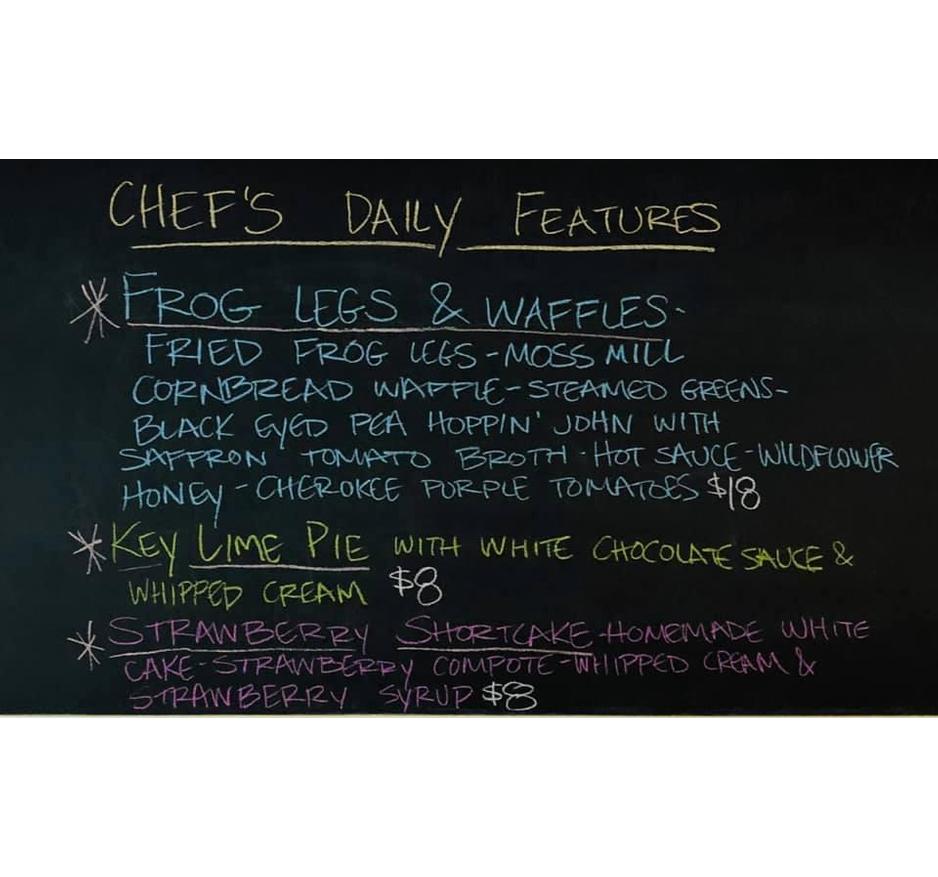 CHEF'S DAILY FEATURES
* FROG LEGS & WAFFLES-
FRIED FROG LEGS - MOSS MILL
CORNBREAD WAFFLE - STEAMED GREENS -
BLACK EYED PEA HOPPIN' JOHN WITH
SAFFRON TOMATO BROTH - HOT SAUCE - WILDFLOWER
HONEY - CHEROKEE PURPLE TOMATOES $18
* KEY LIME PIE WITH WHITE CHOCOLATE SAUCE &
WHIPPED CREAM $8
* STRAWBERRY SHORTCAKE - HOMEMADE WHITE
CAKE - STRAWBERRY COMPOTE - WHIPPED CREAM &
STRAWBERRY SYRUP $8